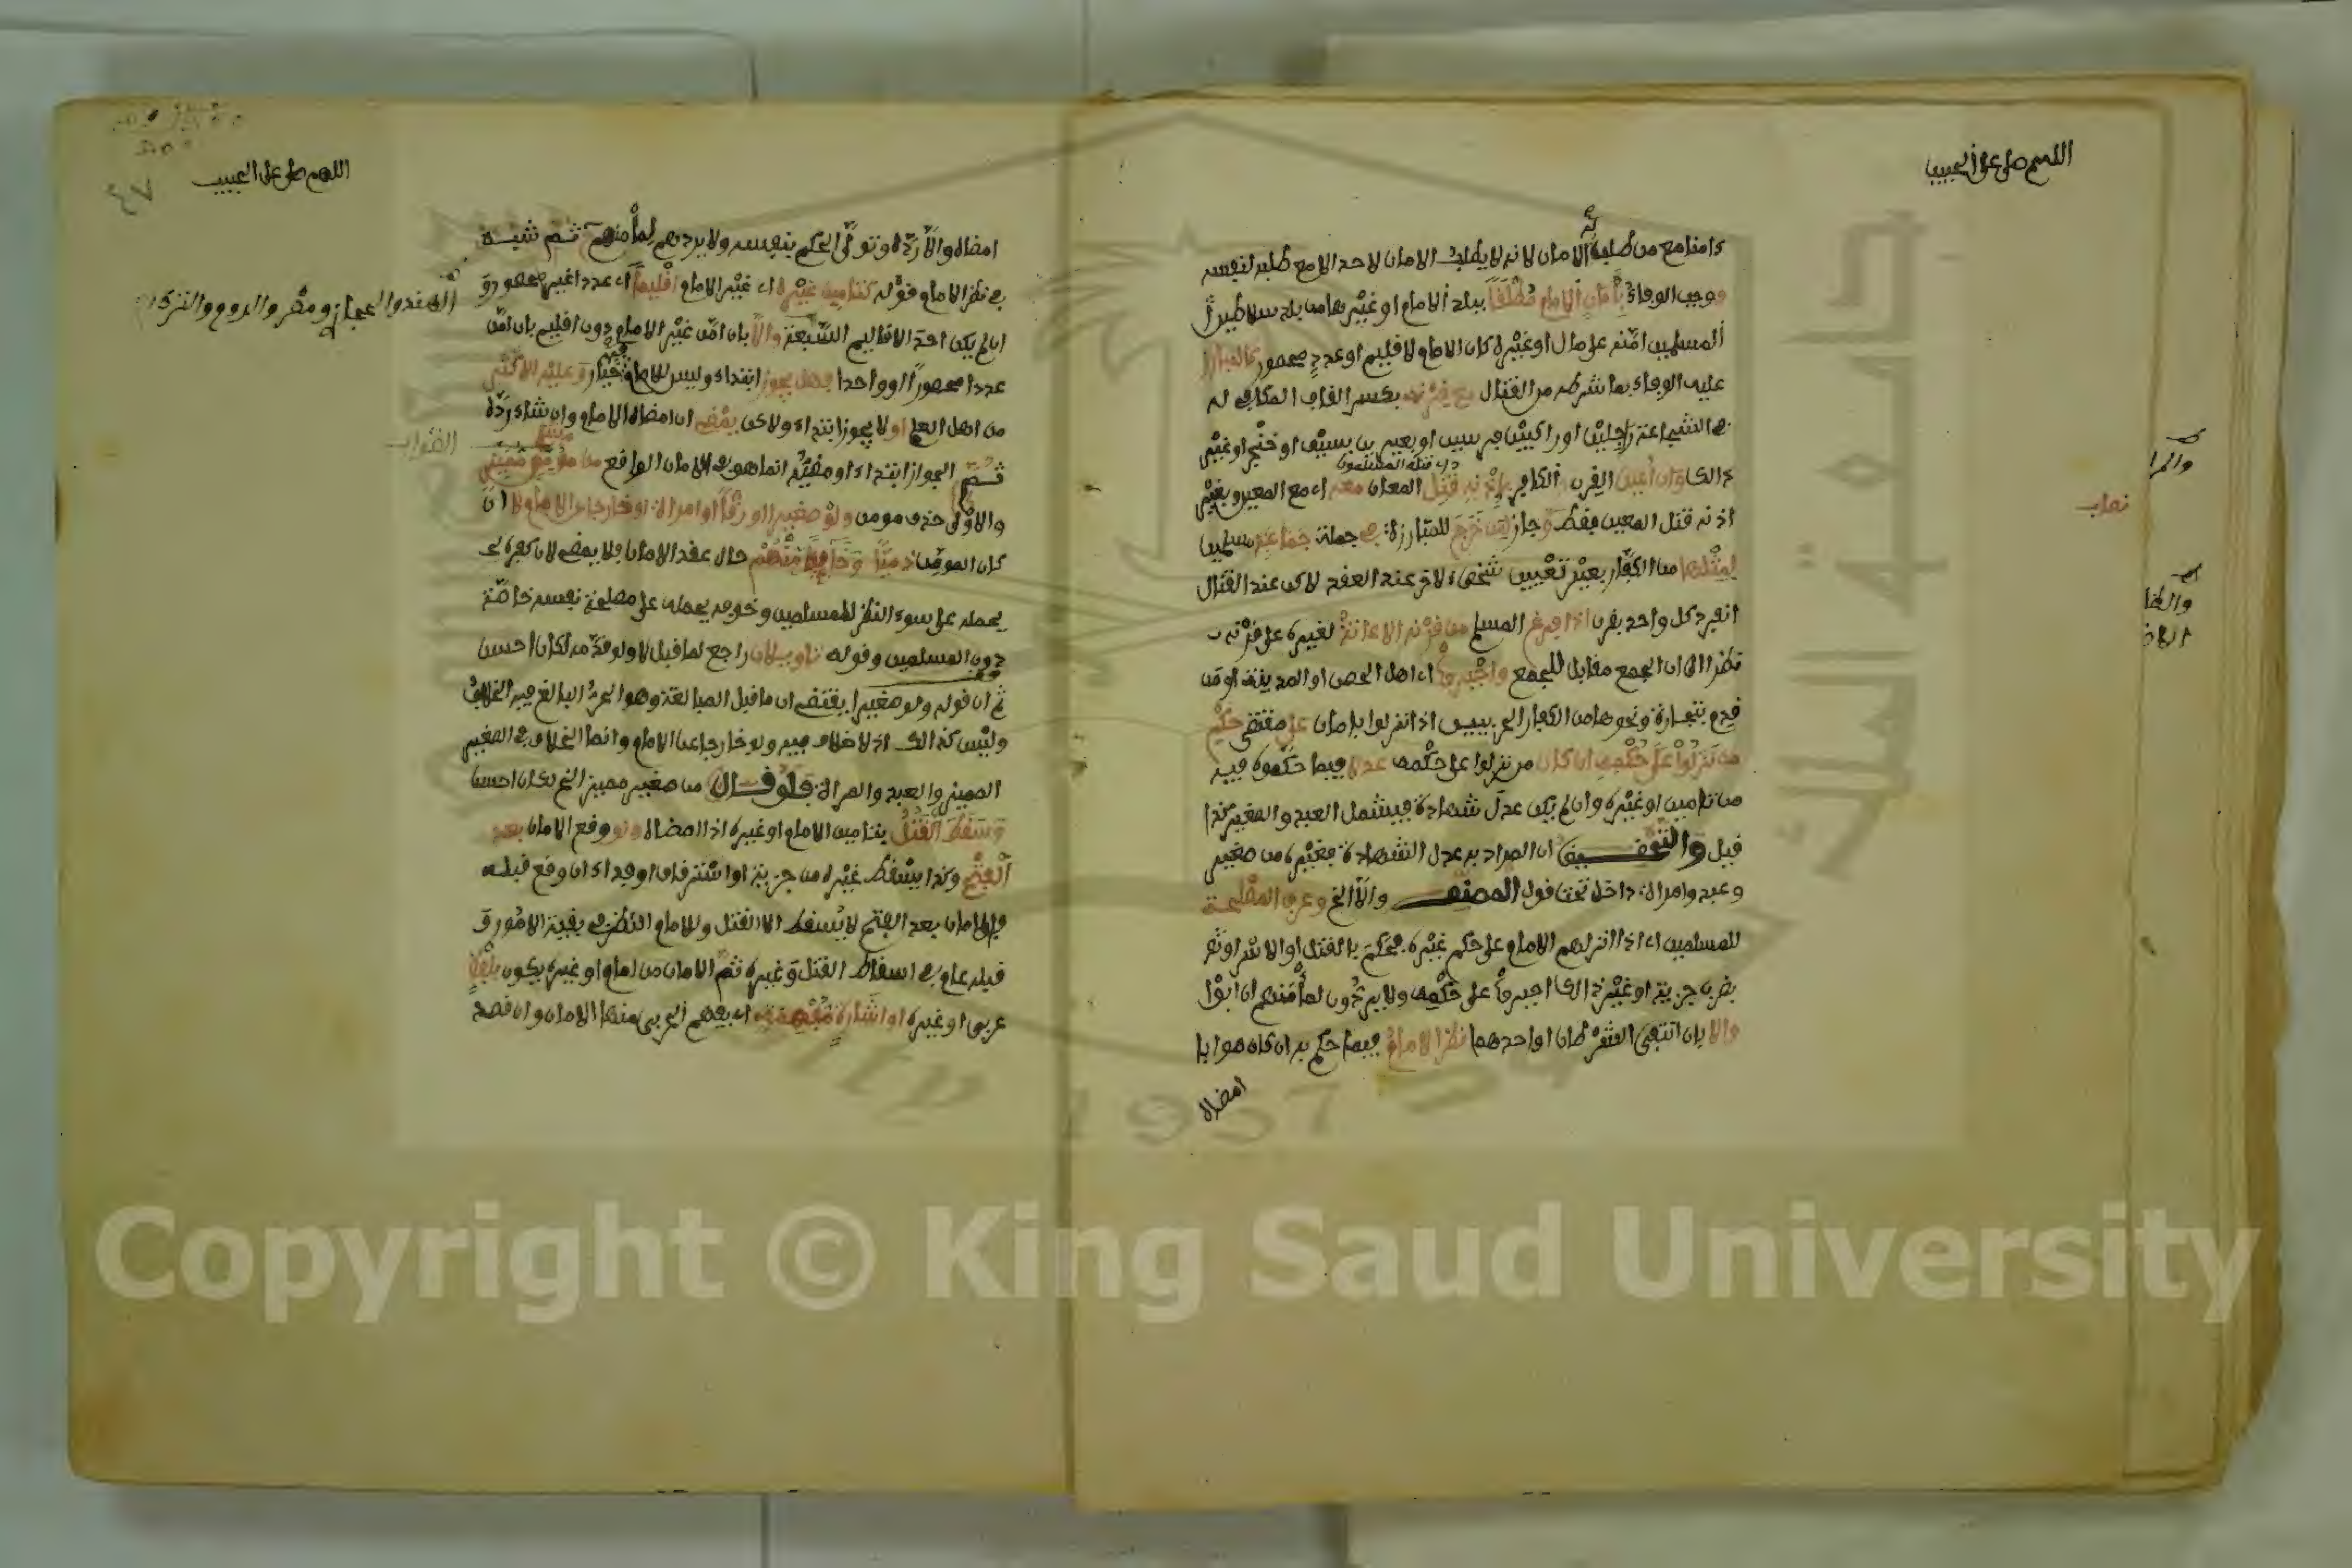 اللهم صل على الحبيب
كامنا مع من طلب له الامان لانه لا يطلب الامان لاحد الا مع طلبه لنفسه
ووجب الوفاء بأمان الامام مطلقا ببلد الامام او غيرها من بلد سلاطين
المسلمين امنه على مال او غيره كان الامام لاقليم او عدد محصور كالمبارز
عليه الوفاء بما شرطه من القتال مع قرنه بكسر القاف المكافى له
في الشجاعة راجلين او راكبين فرسين او بعيرين بسيف او خنجر او غير
ذالك وان أعين القرن الكافر بإذنه قتل المعان معه اى مع المعين وبغير
اى قتله المسلمون
اذنه قتل المعين فقط وجاز لمن خرج للمبارزة في جملة جماعة مسلمين
لمثلها من الكفار بغير تعيين شخص لاخر عند العقد لاكن عند القتال
انفرد كل واحد بقرن اذا فرغ المسلم من قرنه الاعانة لغيره على قرنه
نظرا الى ان الجمع مقابل للجمع وأجبروا اى اهل الحصن او المدينة او من
قدم بتجارة ونحوها من الكفار الحربيين اذا نزلوا بامان على مقتضى حكم
من نزلوا على حكمه ان كان من نزلوا على حكمه عدلا فيما حكموه فيه
من تامين او غيره وان لم يكن عدل شهادة فيشمل العبد والصغير كذا
قيل والتحقيق ان المراد به عدل الشهادة فغيره من صغير
وعبد وامراة داخل تحت قول المصنف والا الخ وعرف المصلحة
للمسلمين اى اذا انزلهم الامام على حكم غيره فحكم بالقتل او الاسر او
بضرب جزية او غير ذالك اجبروا على حكمه ولا يردون لمأمنهم ان ابوا
والا بان انتفى الشرطان او احدهما نظر الامام فيما حكم به ان كان صوابا
امضاه
اللهم صل على الحبيب
امضاه والا رده وتولى الحكم بنفسه ولا يردهم لمأمنهم ثم شبه
في نظر الامام قوله كتامين غيره اى غير الامام اقليما اى عددا غير محصور و
الهند والحجاز ومصر والروم والترك
ان لم يكن احد الاقاليم السبعة والا بان امن غير الامام دون اقليم بان امن
عددا محصورا او واحدا فهل يجوز ابتداء وليس للامام فيه خيار وعليه الاكثر
من اهل العلم او لا يجوز ابتداء ولاكن يمضى ان امضاه الامام وان شاء رده
الصواب
ثم الجواز ابتداء او مضيه انما هو في الامان الواقع من مؤمن مميز
والاولى حذف مومن ولو صغيرا او رقا او امراة او خارجا على الامام لا ان
كان المومن ذميا وخائفا منهم حال عقد الامان فلا يمضى لان كفره
يحمله على سوء النظر للمسلمين وخوفه يحمله على مصلحة نفسه خاصة
دون المسلمين وقوله تاويلان راجع لما قبل لا ولو قدمه لكان احسن
ثم ان قوله ولو صغيرا يقتضى ان ما قبل المبالغة وهو الحر البالغ فيه الخلاف
وليس كذالك اذ لا خلاف فيه ولو خارجا على الامام وانما الخلاف في الصغير
المميز والعبد والمراة فلو قال من صغير مميز الخ لكان احسن
وسقط القتل بتامين الامام او غيره اذا امضاه ولو وقع الامان بعد
الفتح وكذا يسقط غيره من جزية او استرقاق او فداء ان وقع قبله
فالامان بعد الفتح لا يسقط الا القتل وللامام النظر في بقية الامور و
قبله عام في اسقاط القتل وغيره ثم الامان من امام او غيره يكون بلفظ
عربى او غيره او اشارة مفهمة اى يفهم الحربى منها الامان وان قصد
Copyright © King Saud University
جامعة الملك
1957